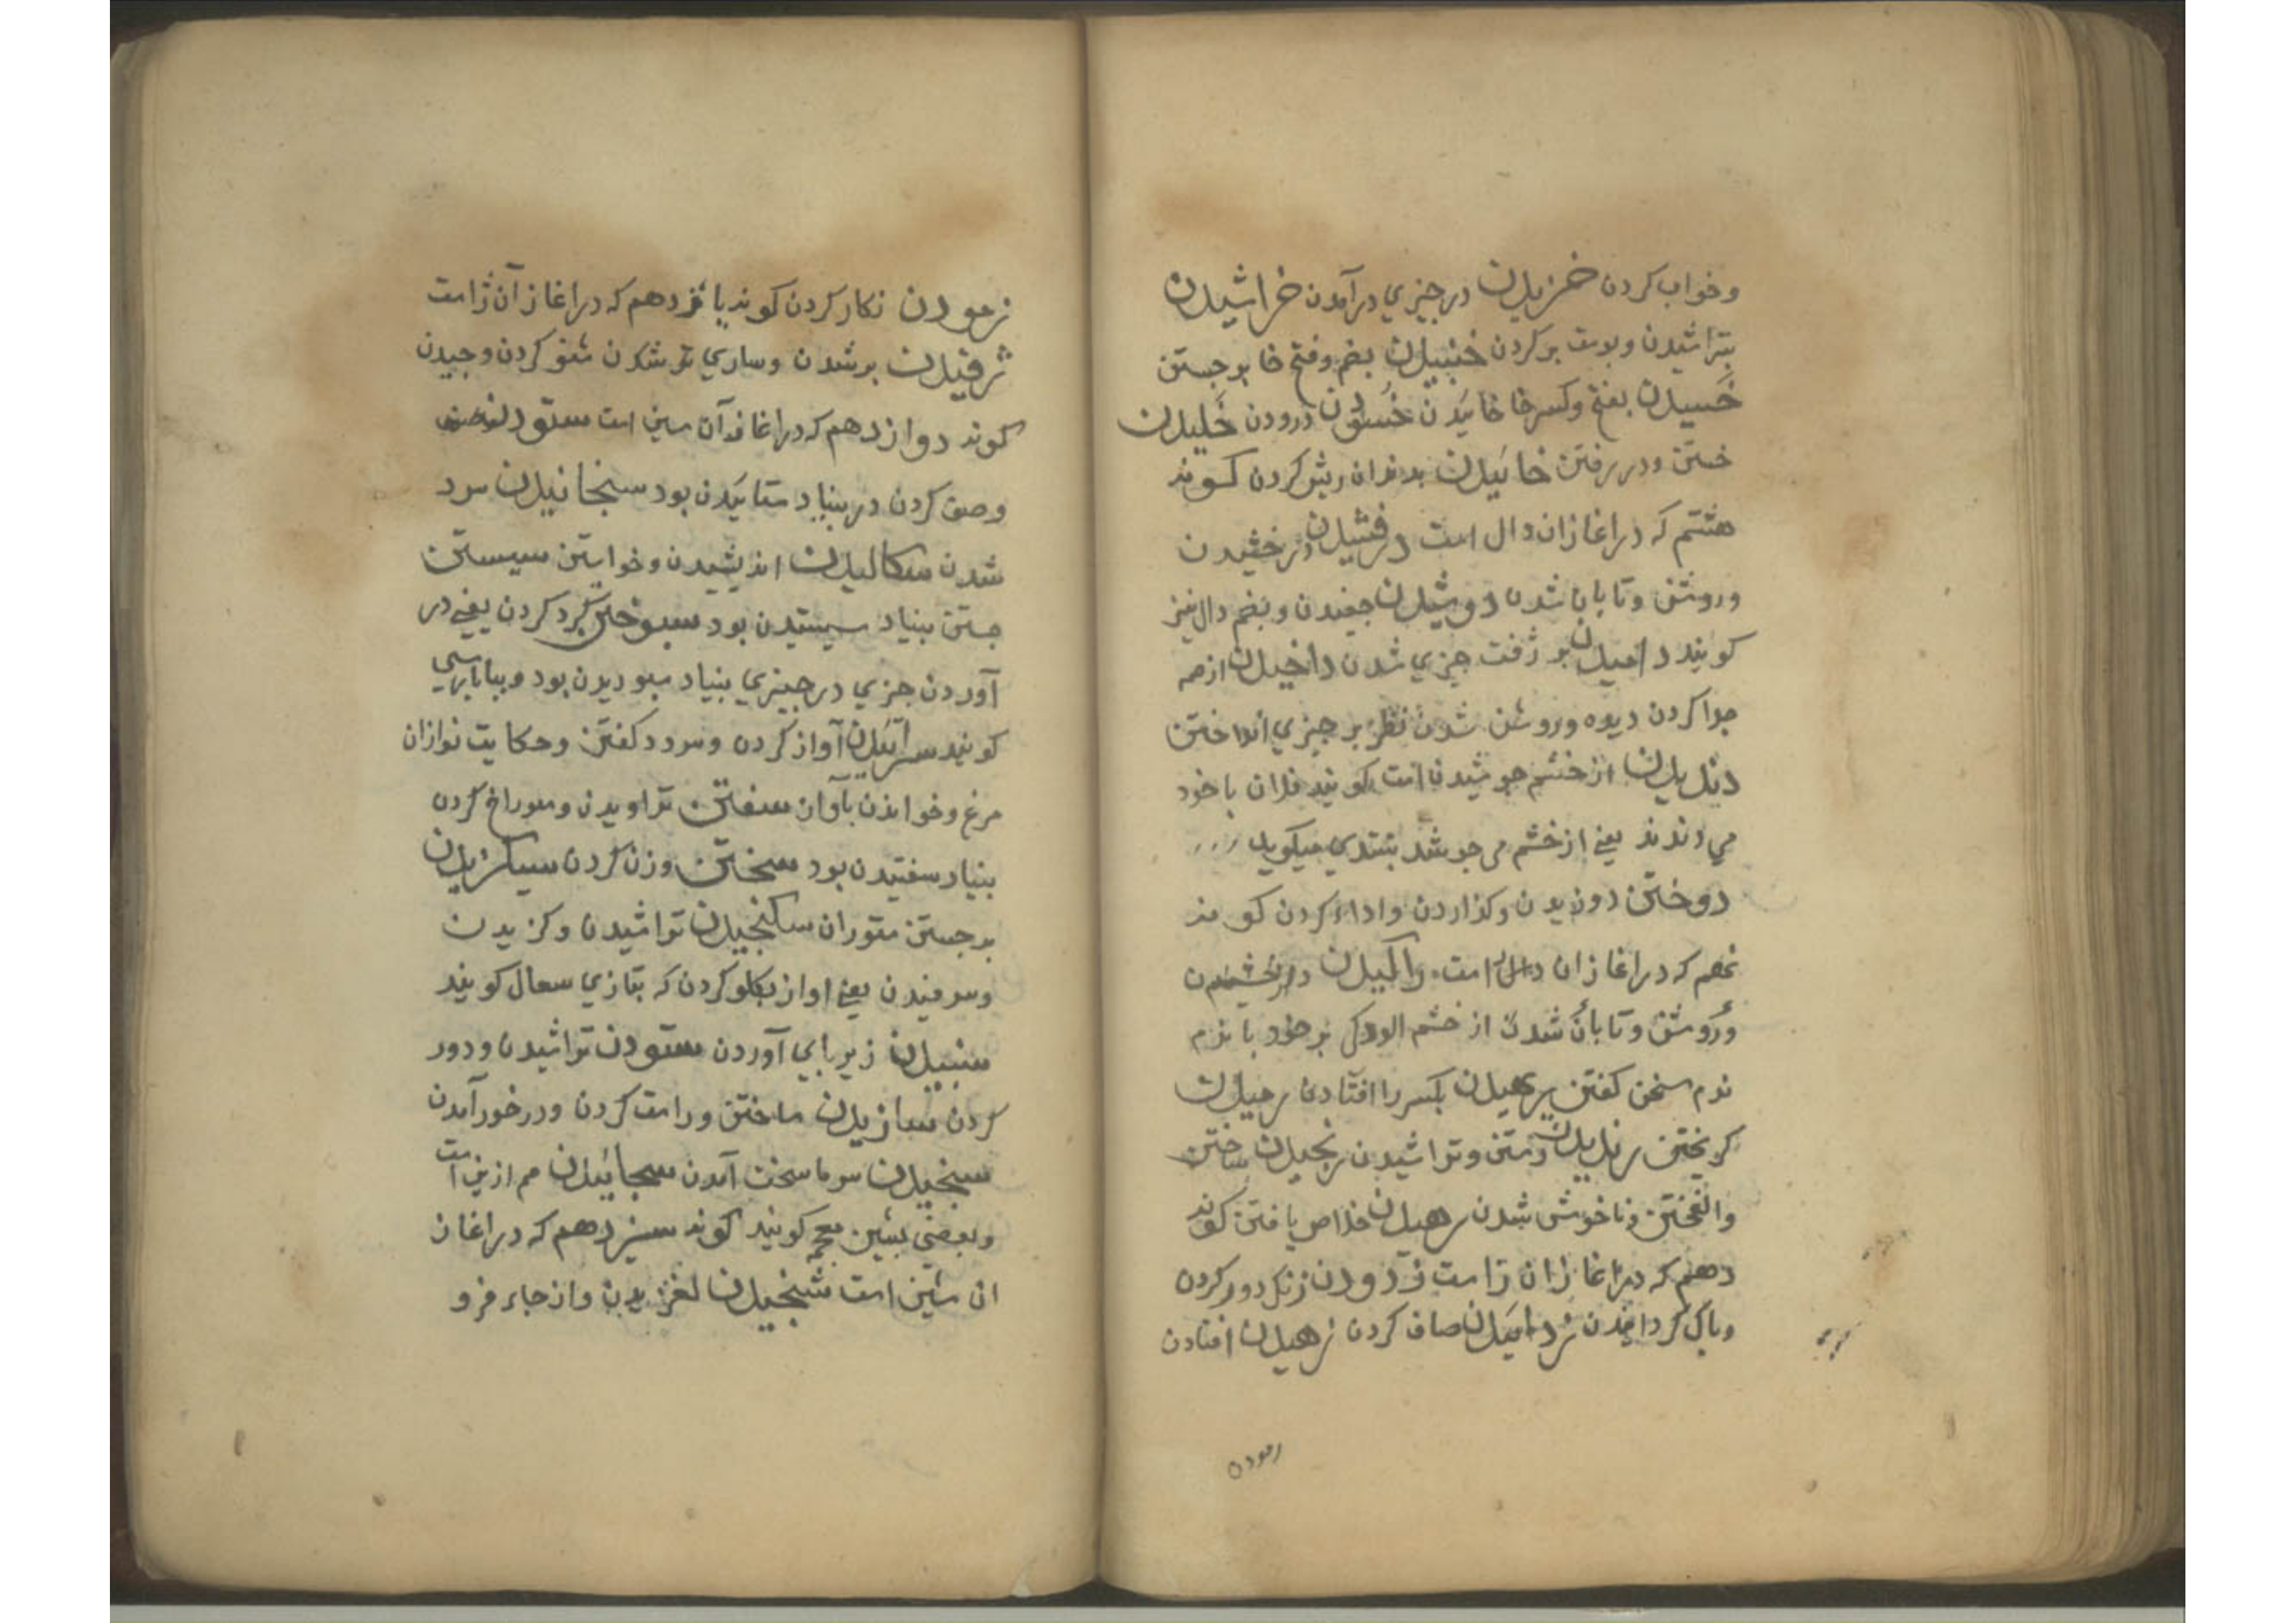 وخواب کردن خزیدن در چیزی درآمدن خراشیدن
بتراشیدن وپوست برکردن خنبیدن بضم وفتح خا برجستن
خسیدن بفتح وکسر خا خائیدن خسودن درودن خلیدن
خستن ودر رفتن خائیدن بدندان ریش کردن کوند
هشتم که دراغازان دال است درفشیدن درخشیدن
وروشن وتابان شدن دوشیدن جفیدن وبضم دال نیز
کویند دامیدن بر زفت چیزی شدن داخیدن ازهم
جدا کردن دیوه وروشن شدن نظر بر چیزی انداختن
دندیدن از خشم جوشیدن است کویند فلان باخود
می دندد یعنی از خشم می جوشد بتندی میکوید
دوختن دوزیدن وکذاردن وادا کردن کوند
نهم که دراغازان را است راکیدن درخشیدن
وروشن وتابان شدن از خشم الودکی برخود با نرم
نرم سخن کفتن برهیدن بکسر را افتادن رمیدن
کریختن رندیدن رستن وتراشیدن رنجیدن ساختن
والفختن وناخوش شدن رهیدن خلاص یافتن کوند
دهم که دراغازان زا است زدودن زنک دور کردن
وپاک کردانیدن زدائیدن صاف کردن زهیدن افتادن
زمودن
زمودن نکار کردن کوند یازدهم که دراغازآن ژا است
ژرفیدن برشدن وساری
کوند دوازدهم که دراغازآن سین است ستودن
وصف کردن در بنیاد ستائیدن بود سنجانیدن سرد
شدن سکالیدن اندیشیدن وخواستن سیستن
جستن بنیاد سیستیدن بود سپوختن کرد کردن یعنی در
آوردن چیزی در چیزی بنیاد سپوزیدن بود وببا پارسی
کویند سرائیدن آواز کردن وسرود کفتن وحکایت نوازان
مرغ وخواندن بآواز سفتن تراویدن وسوراخ کردن
بنیاد سفتیدن بود سختن وزن کردن سیکزیدن
برجستن ستوران سکنجیدن تراشیدن وکزیدن
وسرفیدن یعنی اواز بکلو کردن که بتازی سعال کویند
سنبیدن زیر پای آوردن ستودن تراشیدن ودور
کردن سازیدن ساختن وراست کردن ودرخورآمدن
سنجیدن سرما سخت آمدن سجائیدن هم ازین است
وبعضی بشین معجمه کویند کوند سیزدهم که دراغاز
ان شین است شنجیدن لغزیدن واز جاء فرو